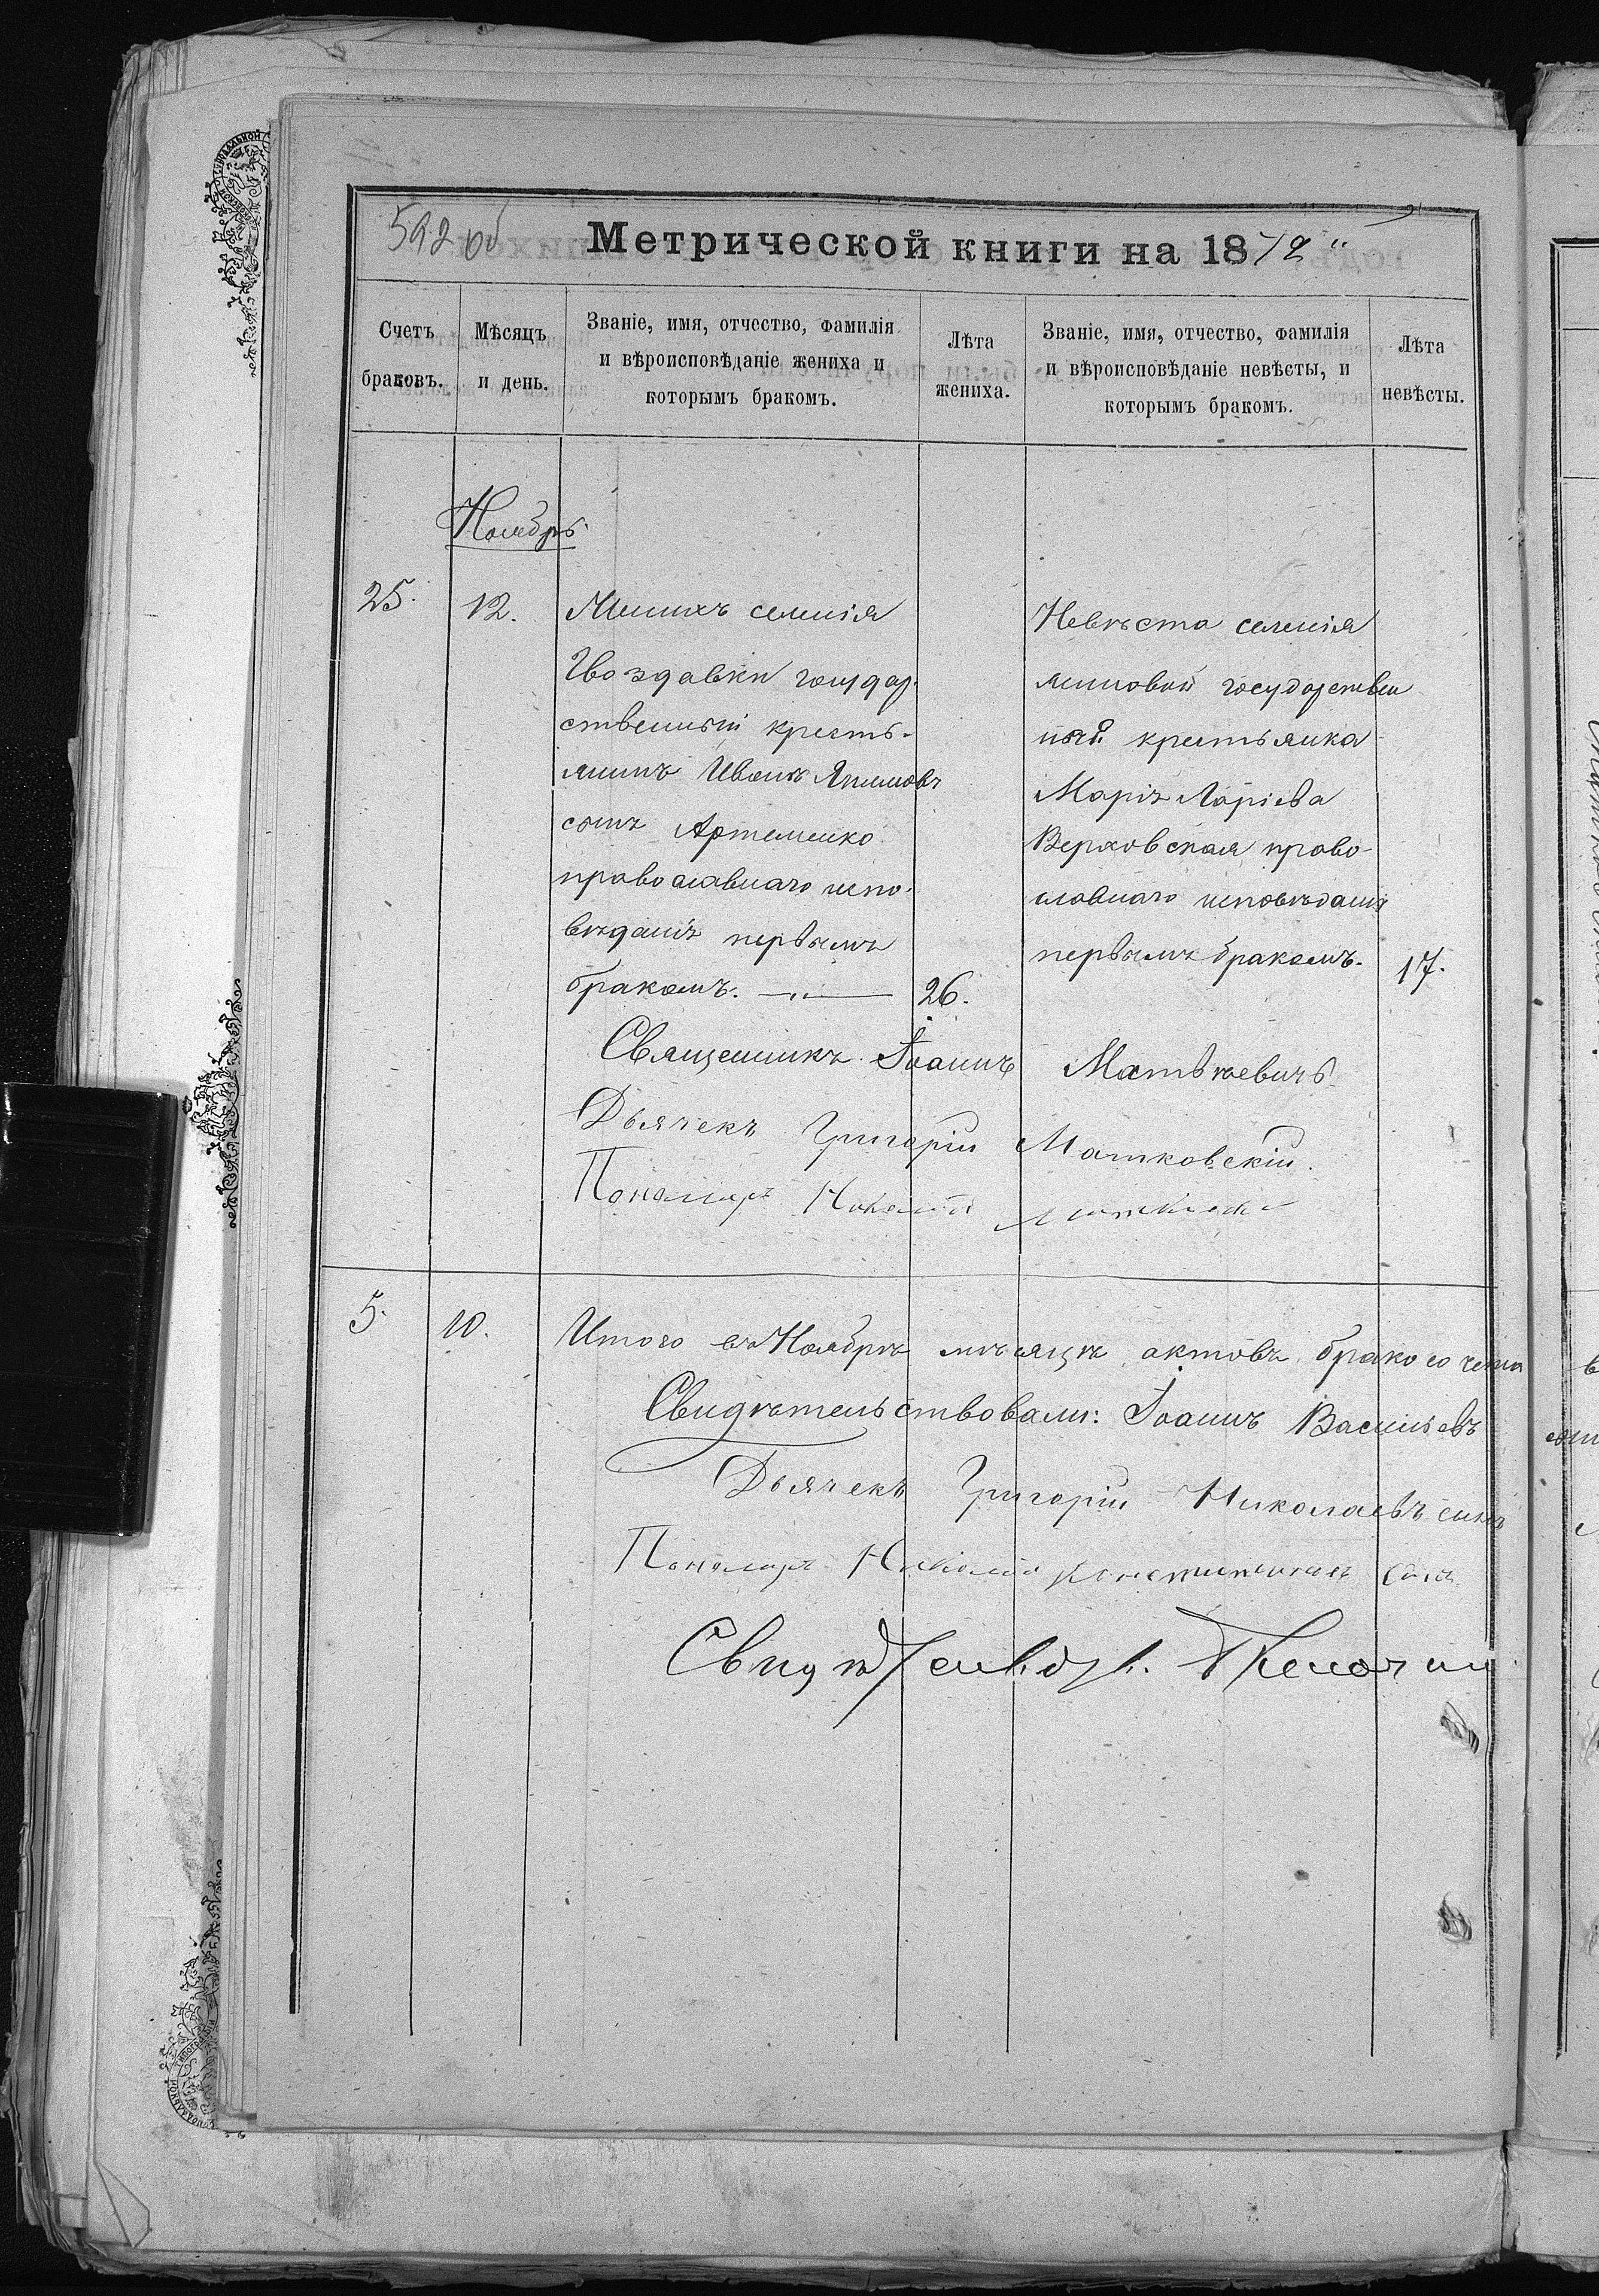 592 об
Метрической книги на 1872
Счетъ браковъ.
Мѣсяцъ и день.
Званіе, имя, отчество, фамилія и вѣроисповѣданіе жениха и которымъ бракомъ.
Лѣта жениха.
Званіе, имя, отчество, фамилія и вѣроисповѣданіе невѣсты, и которымъ бракомъ.
Лѣта невѣсты.
Ноябрь
25.
12.
Женихъ селенія
Гвоздавки государ-
ственный кресть-
янинъ Иванъ Якимовъ
сынъ Артеменко
православнаго испо-
вѣданія первымъ
бракомъ.
26.
Невѣста селенія
государствен
крестьянка
Марія
Верховская право-
славнаго исповѣданія
первымъ бракомъ.
17.
Священникъ Іоаннъ Матѣевичъ
Дьячекъ Григорій Матковскій.
Пономарь Николай
5.
10.
Итого въ Ноябрѣ мѣсяцѣ актовъ бракосочета
Свидѣтельствовали: Іоаннъ Васильевъ
Дьячекъ Григорій Николаевъ сынъ
Пономарь Николай Константиновъ сынъ